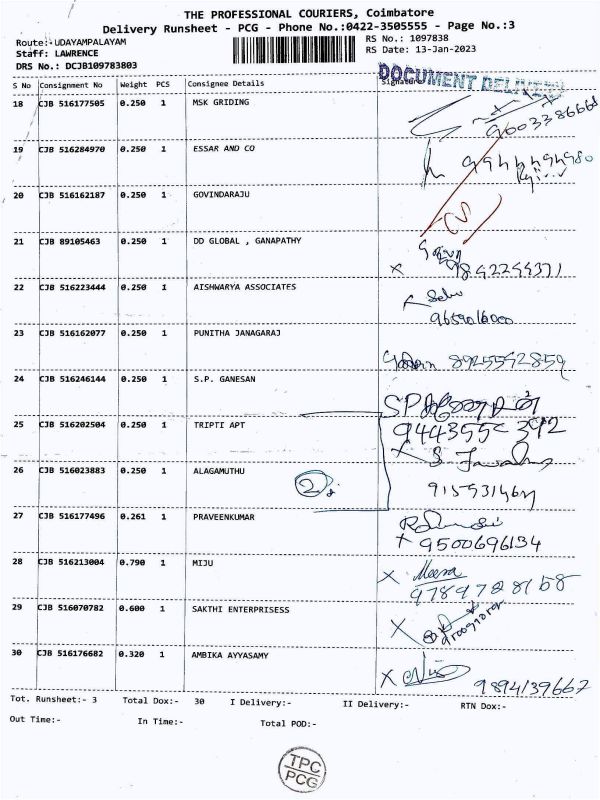 THE PROFESSIONAL COURIERS, Coimbatore
Delivery Runsheet - PCG - Phone No.:0422-3505555 - Page No.:3
Route:-UDAYAMPALAYAM RS No.: 1097838
Staff: LAWRENCE RS Date: 13-Jan-2023
DRS No.: DCJB109783803
DOCUMENT DELIVERY
S No Consignment No Weight PCS Consignee Details Signature
18 CJB 516177505 0.250 1 MSK GRIDING
19 CJB 516284970 0.250 1 ESSAR AND CO
20 CJB 516162187 0.250 1 GOVINDARAJU
21 CJB 89105463 0.250 1 DD GLOBAL , GANAPATHY
9842244371
22 CJB 516223444 0.250 1 AISHWARYA ASSOCIATES
23 CJB 516162077 0.250 1 PUNITHA JANAGARAJ
8925592859
24 CJB 516246144 0.250 1 S.P. GANESAN
25 CJB 516202504 0.250 1 TRIPTI APT
26 CJB 516023883 0.250 1 ALAGAMUTHU
2
27 CJB 516177496 0.261 1 PRAVEENKUMAR
9500696134
28 CJB 516213004 0.790 1 MIJU
Meena
9789728158
29 CJB 516070782 0.600 1 SAKTHI ENTERPRISESS
30 CJB 516176682 0.320 1 AMBIKA AYYASAMY
9894139667
Tot. Runsheet:- 3 Total Dox:- 30 I Delivery:- II Delivery:- RTN Dox:-
Out Time:- In Time:- Total POD:-
TPC
PCG